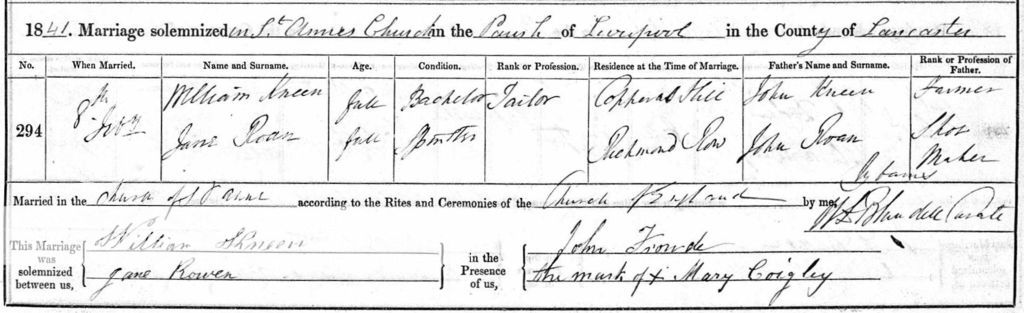 1841. Marriage solemnized in St Annes Church in the Parish of Liverpool in the County of Lancaster
No. When Married. Name and Surname. Age. Condition. Rank or Profession. Residence at the Time of Marriage. Father's Name and Surname. Rank or Profession of Father.
294 8th William Kneen full Bachelor Tailor Copperas Hill John Kneen Farmer
Jane Roan full Spinster Richmond Row John Roan Shoe Maker
By banns
Married in the Church of St Anne according to the Rites and Ceremonies of the Church of England by me, Blundell Curate
This Marriage was solemnized between us, William Kneen
Jane Rowen
in the Presence of us, John Frowde
the mark of x Mary Coigley